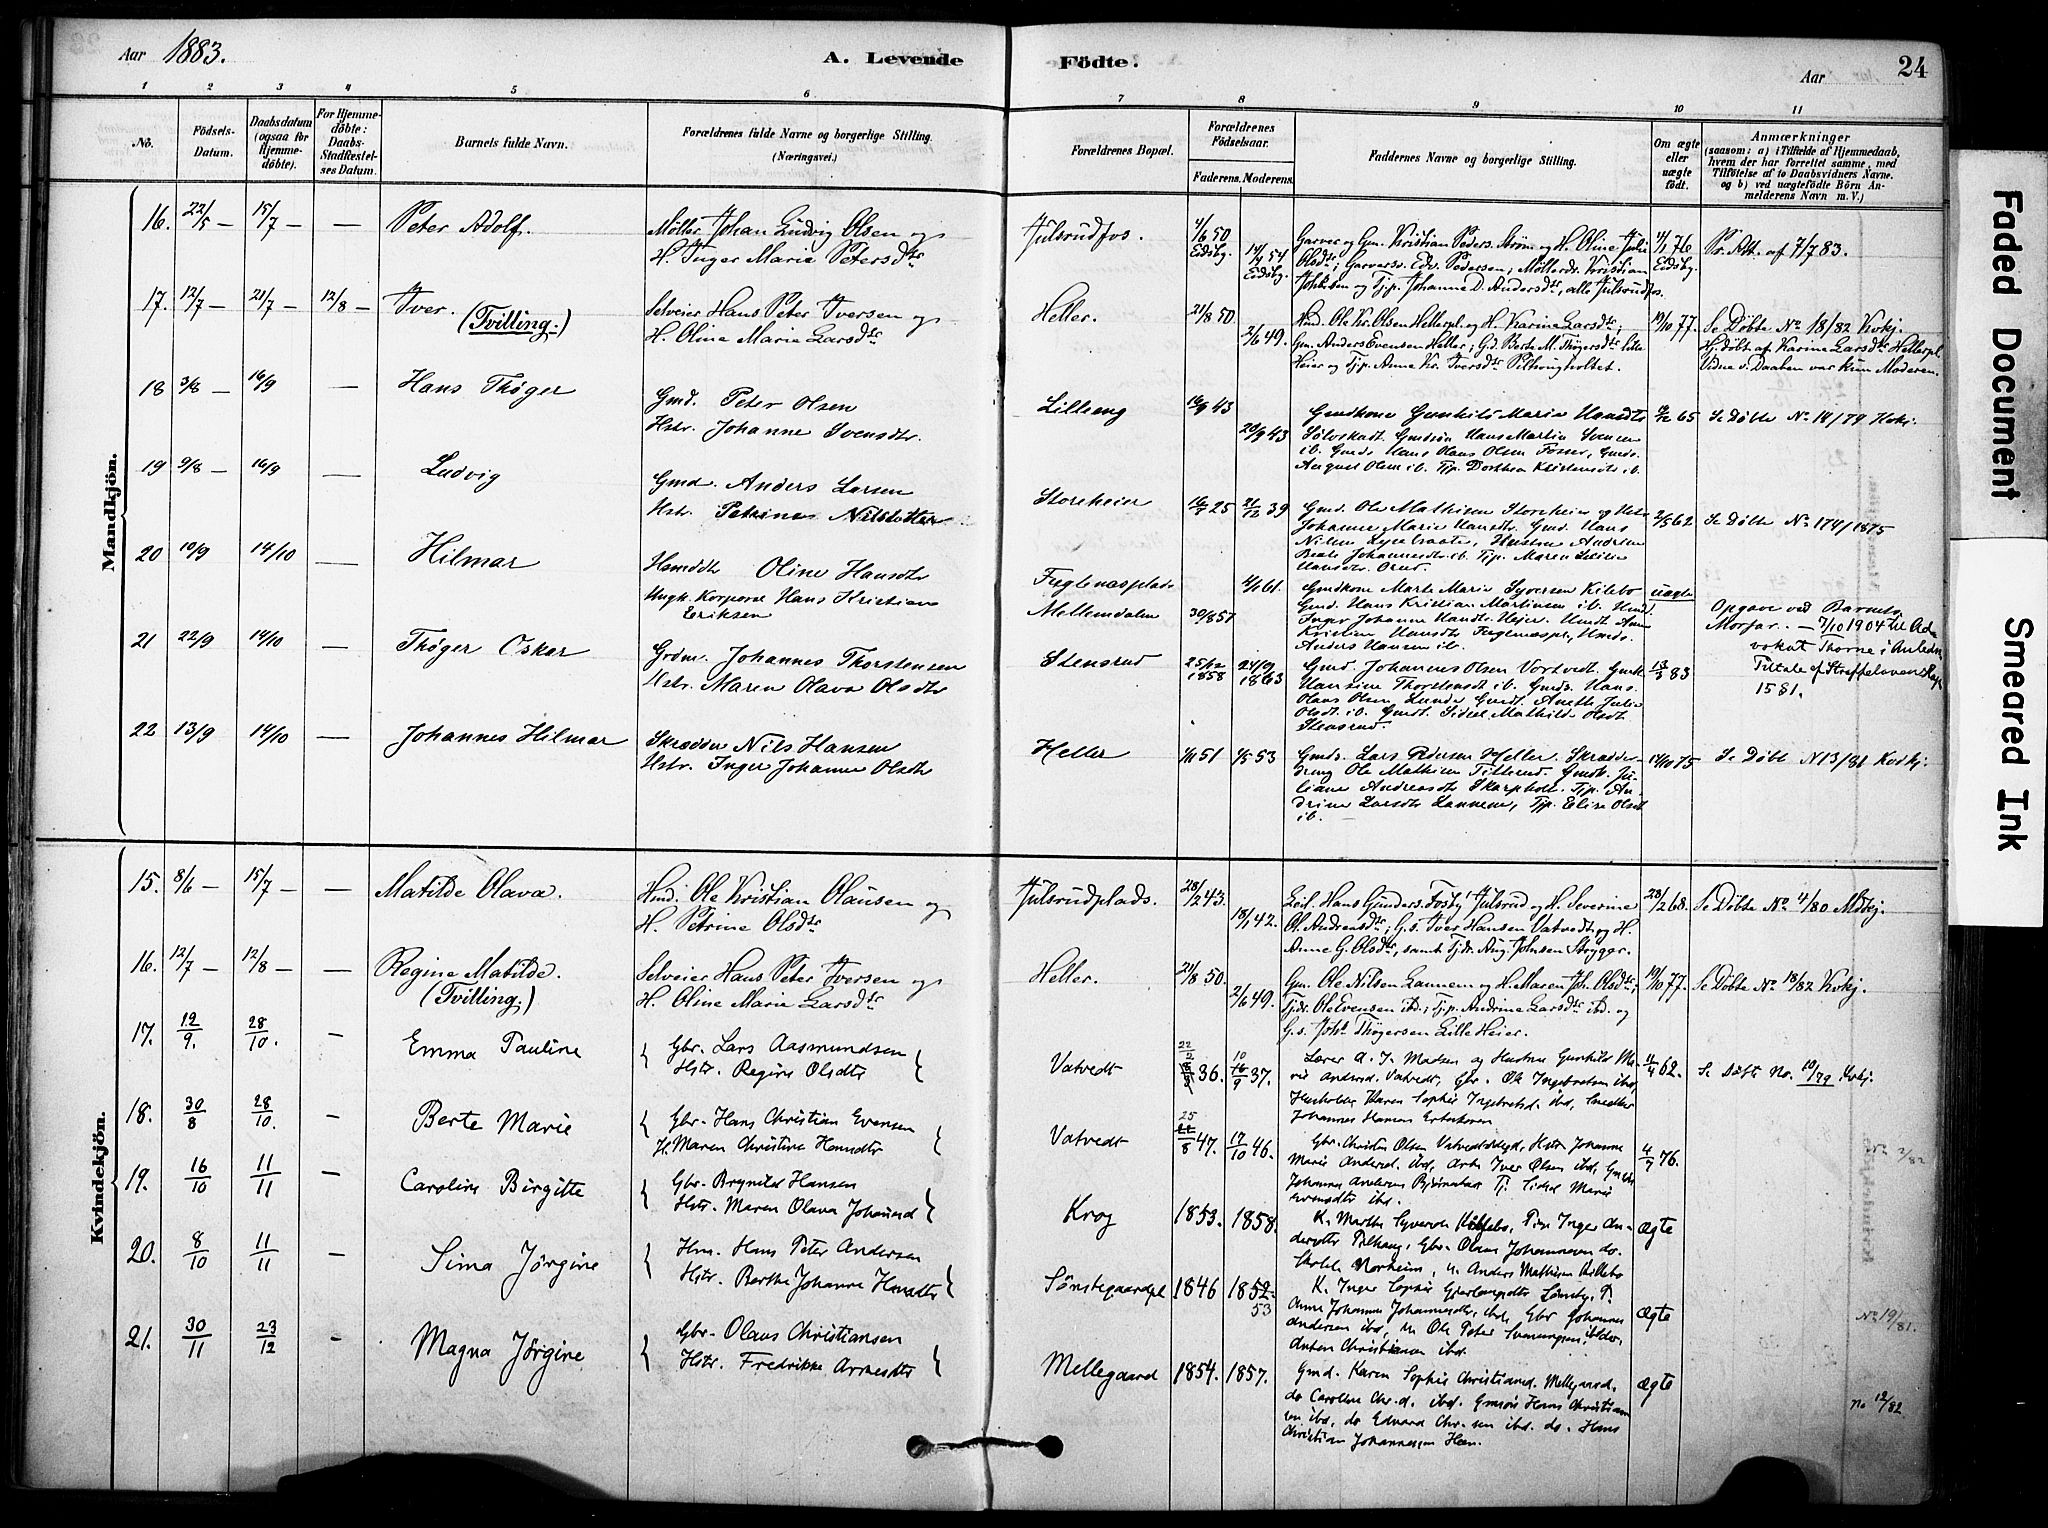 Aar 1883.
A. Levende Födte.
Aar
24
1 2 3 4 5 6 7 8 9 10 11
No.
Födsels-
Datum.
Daabsdatum
(ogsaa for
Hjemme-
döbte).
For Hjemme-
döbte:
Daabs-
Stadfæstel-
ses Datum.
Barnets fulde Navn.
Forældrenes fulde Navne og borgerlige Stilling.
(Næringsvei.)
Forældrenes Bopæl.
Forældrenes
Födselsaar.
Faderens. Moderens.
Faddernes Navne og borgerlige Stilling.
Om ægte
eller
uægte
födt.
Anmærkninger
(saasom: a) i Tilfælde af Hjemmedaab,
hvem der har forrettet samme, med
Tilföielse af to Daabsvidners Navne.
og b) ved uægtefödte Börn An-
melderens Navn m. V.)
Mandkjön.
16. 22/5 — 15/7 — — Peter Adolf. Møller Johan Ludvig Olsen og
H. Inger Marie Petersdtr
Julsrudfos. 4/6 50 Eidsbg. 14/4 54 Eidsbg.
Garver og Gm. Kristian Peders. Strøm og H. Oline Julie
Olsdtr; Garvers. Edv. Pedersen; Møllerdr. Kristian
og Tjp. Johanne D. Andersdtr, alle Julsrudfos.
76 Eidsbg. Pr. Att. af 7/7 83.
17. 12/7 — 21/7 — 12/8 — Iver. (Tvilling.) Selveier Hans Peter Iversen og
H. Oline Marie Larsdtr
Heller. 21/8 50. 2/6 49.
Hmd. Ole Kr. Olsen Hellerpl. og H. Karine Larsdtr;
Gm. Anders Evensen Heller; Gd. Berte M. Thøgersdtr Lille
Heier og Tjp. Anne Kr. Iversdtr
19/10 77. Se Døbte No 18/82 Kvkj.
Hj. døbt af Karine Larsdtr Hellerpl.
Vidne v. Daaben var kun Moderen.
18 3/8 — 16/9 — Hans Thøger Gmd. Peter Olsen
Hstr. Johanne Svensdtr.
Lilleeng 16/9 43 20/9 43
Gmdkone Gunhild Marie Hansdtr
Gmdsøn Hans Martin Svensen
ib. Gmds. Hans Olaus Olsen Fosser, Gmds.
August Olsen ib. Tjp. Dorthea Kristensdtr ib.
65 Se Døbte No 14/79 Hvkj.
19 9/8 — 16/9 — Ludvig Gmd. Anders Larsen
Hstr. Petrine Nilsdatter
Storeheier 25 21/12 39
Gmd. Ole Mathisen Storeheier og Hstr
Johanne Marie Hansdtr. Gmd. Hans
Nilsen Hustru Andrine
Beate Johannesdtr ib. Tjp. Maren
Hansdtr. Orud.
2/5 62 Se Døbte No 174/1875
20 10/9 14/10 — Hilmar Hsmddtr Oline Hansdtr
Ungk. Korporal Hans Kristian
Eriksen
Fuglenæsplads
Mellemdalen 30/8 57 4/1 61.
Gmdkone Marte Marie Syversen Kilebo
Gmd. Hans Kristian Martinsen ib. Hmdt.
Inger Johanne Hansdtr Heier. Hmdt. Anne
Kristine Hansdtr Fuglenæspl., Hmds.
Anders Hansen ib.
uægte Opgave ved Barnets
Morfar. — 7/10 1904 til Ad-
vokat Thorne i Anledn.
Tiltale ef. Straffelovens Kap
1581.
21 22/9 14/10 — Thøger Oskar Grdm. Johannes Thorstensen
Hstr. Maren Olava Olsdtr
Stensrud 25/12 1858 24/9 1863
Gmd. Johannes Olsen Vortvedt. Gmdk.
Hansine Thorstensdt ib. Gmds. Hans
Olaus Olsen Lunde Gmdt. Anette Julie
Olsdt. ib. Gmdt. Sidsel Mathilde Olsdt
Stensrud.
13/3 83
22 13/9 14/10 — Johannes Hilmar Skrædder Nils Hansen
Hstr. Inger Johanne Olsdtr
Heller 51 53
Gmds. Lars Pedersen Heller. Skrædder-
dreng Ole Mathisen Titterud. Gmdk. Ju-
liane Andreasdt Skarpholt. Tjp. An-
drine Larsdtr Lannem, Tjp. Elise Olsdt
ib.
14/10 75 Se Døbt N 13/81 Kvkj.
Kvindekjön.
15. 8/6 — 15/7 — — Matilde Olava. Hmd. Ole Kristian Olausen og
H. Petrine Olsdtr
Julsrudplads. 28/2 43. 18/1 42.
Leil. Hans Gunders. Fosby Julsrud og H. Severine
Ol. Andreasdtr; G.s. Iver Hansen Vatvedt og H.
Anne G. Olsdtr, samt Tjdr. Aug. Johnsen Strygger.
28/2 68. Se Døbte No 4/80 Mdkj.
16. 12/7 — 12/8 — — Regine Matilde.
(Tvilling.)
Selveier Hans Peter Iversen og
H. Oline Marie Larsdtr
Heller. 21/8 50. 2/6 49.
Gm. Ole Nilsen Lannem og H. Maren Joh. Olsdtr;
Tjdr. Ole Evensen ibd.; Tjp. Andrine Larsdtr ibd. og
G.s. Johs Thøgersen Lille Heier.
19/10 77. Se Døbte No 18/82 Kvkj.
17. 12/9. 28/10. — Emma Pauline { Gbr. Lars Aasmundsen
Hstr. Regine Olsdtr }
Vatvedt 22/12 36. 10/9 37.
Lærer A. J. Madsen og Hustru Gunhild Ma-
rie Andersd. Vatvedt, Gbr. Ole Ingebretsen ibd,
Husholdr. Karen Sophie Ingebretsd. ibd, Snedker
Johannes Hansen
4/4 62. Se Døbte No. 10/79 Kvkj.
18. 30/8 28/10. — Berte Marie { Gbr. Hans Christian Evensen
H. Maren Christine Hansdtr }
Vatvedt 25/8 47. 17/10 46.
Gbr. Christen Olsen Vatvedt Hstr. Johanne
Marie Andersd. ibd, Arb. Iver Olsen ibd, Gmds
Johannes Andersen Tj. Sidsel Marie
Evensdtr ibd.
4/7 76. No 2/82
19. 16/10 11/11 — Caroline Birgitte { Gbr. Brynild Hansen
Hstr. Maren Olava Johansd }
Krog 1853. 1858.
K. Marthe Syversd. Killebo, Pige Inger An-
dersdtr Gbr. Olaus Johannesen do.
Norheim, u. Anders Mathisen Killebo
ægte
20. 8/10 11/11 — Sima Jörgine { Hm. Hans Peter Andersen
Hstr. Berthe Johanne Hansdtr }
Sönstegaardpl 1846 1852 53
K. Inger Sophie P.
Anne Johanne Johannesdtr, ibd, Gbr Johannes
Andersen ibd, u Ole Peter
Anton Christiansen ibd.
ægte No 19/81.
21. 30/11 23/12 — Magna Jörgine { Gbr. Olaus Christiansen
Hstr. Fredrikke Arnesdtr }
Mellegaard 1854. 1857.
Gmd. Karen Sophie Christiansd. Mellegaard.
do Caroline Chr.d. ibd. Gmsøn Hans Christian-
sen ibd, do Edvard Chr.sen ibd. do. Hans
Christian Johannessen Hen.
ægte No 12/82
Faded Document
Smeared Ink